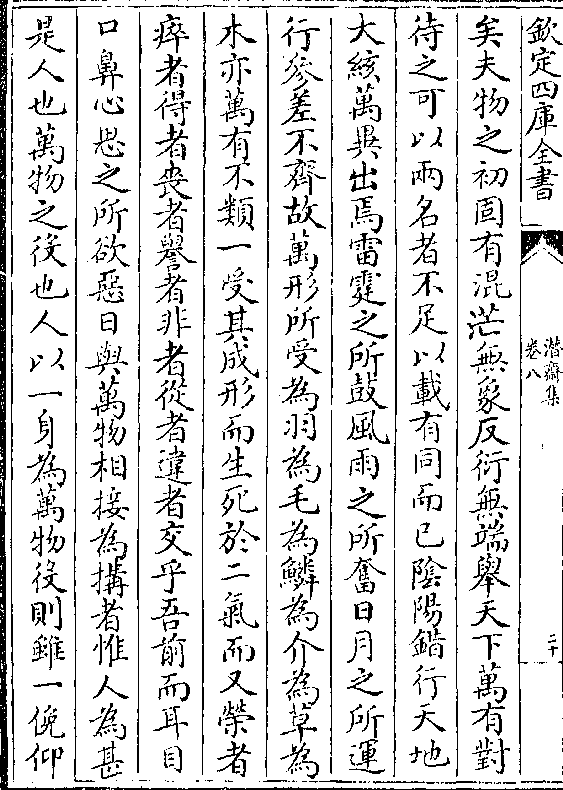 欽定四庫全書
潛齋集
卷八
二十
矣夫物之初固有混茫無象反衍無端舉天下萬有對
待之可以兩名者不足以載有同而已陰陽錯行天地
大絯萬異出焉雷霆之所鼓風雨之所奮日月之所運
行參差不齊故萬形所受為羽為毛為鱗為介為草為
木亦萬有不類一受其成形而生死於二氣而又榮者
瘁者得者喪者譽者非者從者違者交乎吾前而耳目
口鼻心思之所欲惡日與萬物相接為搆者惟人為甚
是人也萬物之役也人以一身為萬物役則雖一俛仰